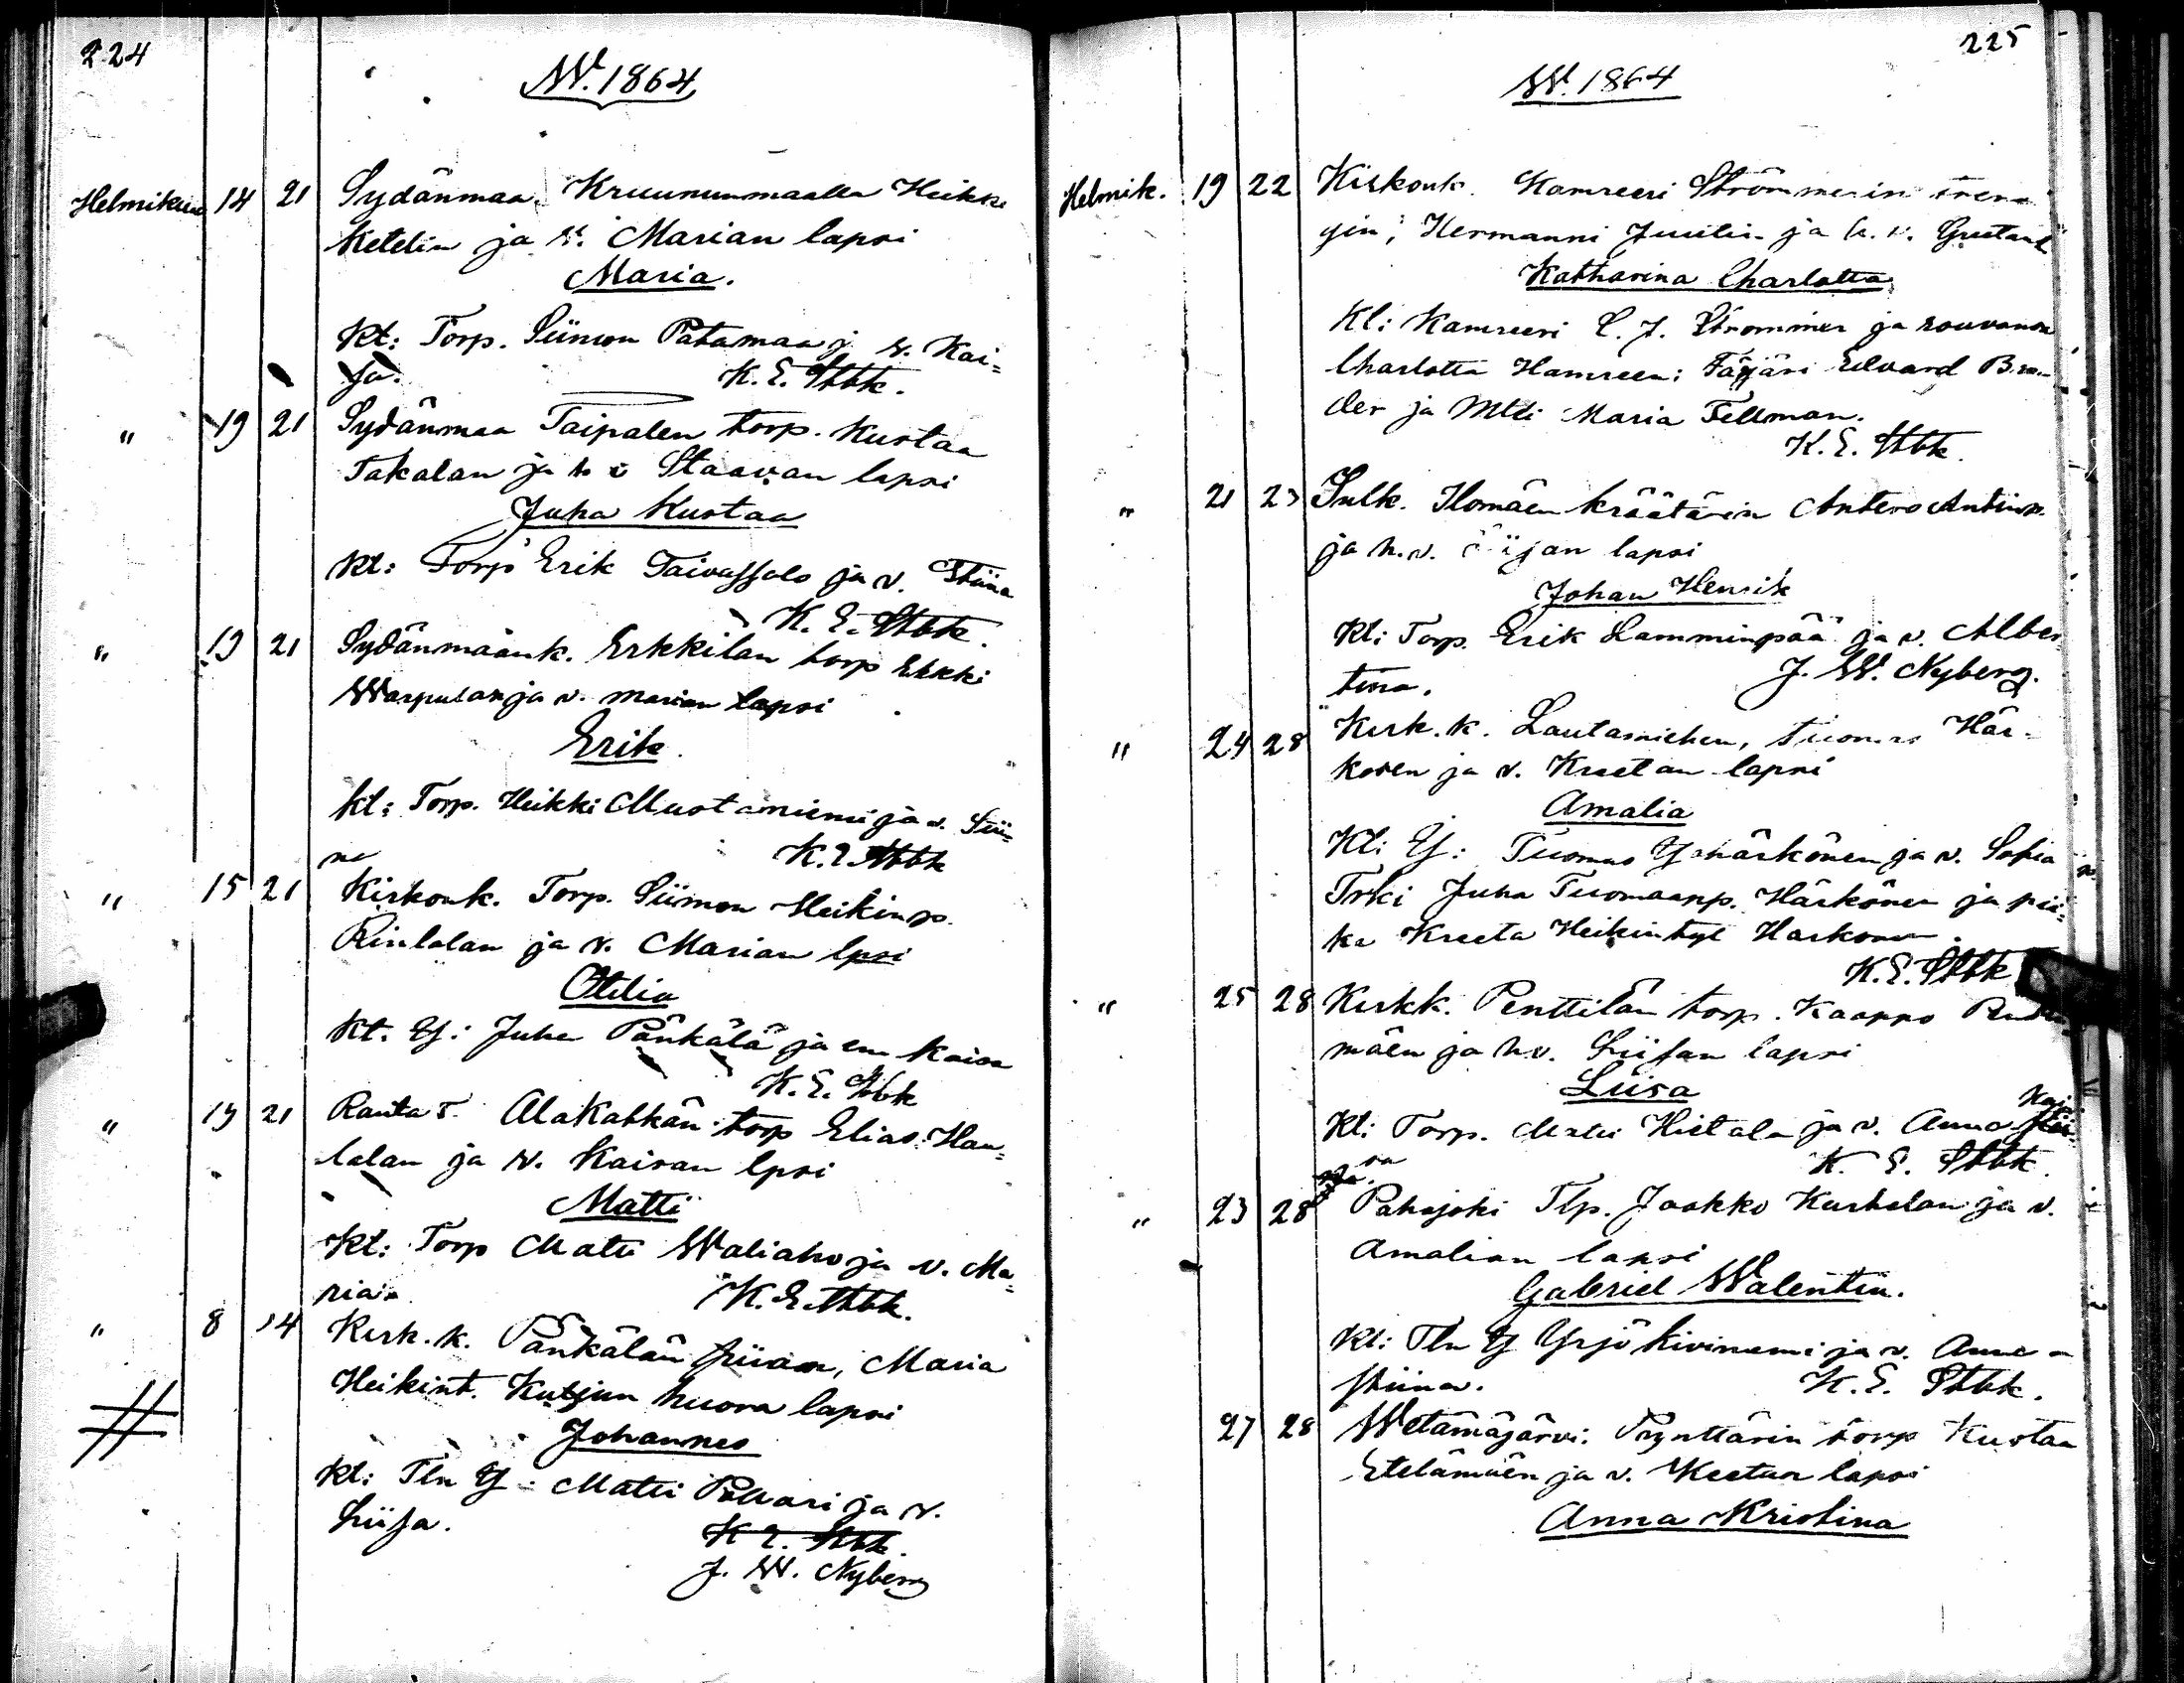 224
W. 1864
Helmikuu 14 21 Sydänmaa. Kruununmaalla Heikki
Ketelin ja v. Marian lapsi
Maria.
Kt: Torp. Siimon Patamaa j v. Kai=
sa. K. E. Stbk.
" 19 21 Sydänmaa Taipalen torp. Kustaa
Takalan ja h v Staavan lapsi
Juha Kustaa
Kt: Torp Erik Taivassalo ja v. Stiina
K. E. Stbk.
" 19 21 Sydänmaank. Erkkilän torp Erkki
Warpulan ja v. Marian lapsi
Erik.
kt: Torp. Heikki Mustaniemi ja v. Sii=
na K. E. Stbk
" 15 21 Kirkonk. Torp. Siimon Heikinp.
Rintalan ja v. Marian lpsi
Otilia
Kt. Yj: Juha Pänkälä ja em Kaisa
K. E. Stbk
" 19 21 Ranta T. Alakatkän torp Elias Hau=
talan ja v. Kaisan lpsi
Matti
Kt: Torp Matti Waliaho ja v. Ma=
ria. K. E. Stbk.
" 8 14 Kirk. k. Pänkälän piian, Maria
Heikint. Kutjun huora lapsi
Johannes
Kt: Tln Yj: Matti Pollari ja v.
Liisa. K E. Stbk.
J. W. Nyberg
225
W. 1864
Helmik. 19 22 Kirkonk. Kamreeri Strömmerin tren=
gin, Hermanni Juutin ja h. v. Greetan l
Katharina Charlotta
Kt: Kamreeri C. J. Strömmer ja rouvansa
Charlotta Hamreen: Färjäri Edvard
der ja Mlli Maria Fellman.
K. E. Stbk.
" 21 23 Sulk. Ilomäen kräätärin Antero Antinp.
ja h. v. lapsi
Johan Henrik
Kt: Torp. Erik Lamminpää ja v. Alber
tina. J. W. Nyberg.
" 24 28 Kirk. k. Lautamiehen, Tuomas Här=
kösen ja v. Kreetan lapsi
Amalia
Kt: Yj: Tuomas Ylihärkönen ja v. Sofia
Trki Juha Tuomaanp. Härkönen ja pii=
ka Kreeta Heikintyt Harkonen.
K. E. Stbk
" 25 28 Kirkk. Penttilän torp. Kaappo
mäen ja h v. Liisan lapsi
Liisa
Kt: Torp. Matti Hietala ja v. Anna Kai
sa K. E. Stbk.
" 23 28 Pahajoki Tlp. Jaakko Kurhelan ja v.
Amalian lapsi
Gabriel Walentin.
Kt: Tln Yj Yrjö Kiviniemi ja v. Anna
Stiina. K. E. Stbk.
27 28 Wetämäjärvi: Prynttärin torp Kustaa
Etelämäen ja v. Kreetan lapsi
Anna Kristina